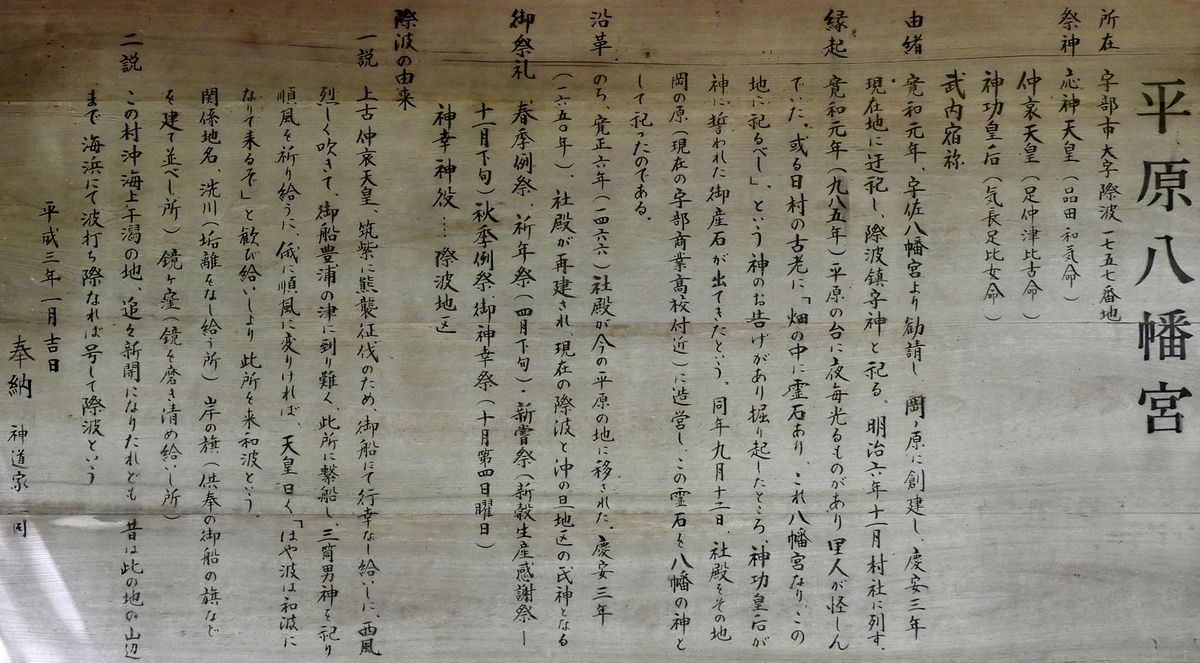 平原八幡宮
所在　宇部市大字際波一七五七番地
祭神　応神天皇（品田和気命）
仲哀天皇（足仲津比古命）
神功皇后（気長足比女命）
武内宿祢
由緒　寛和元年、宇佐八幡宮より勧請し、岡ノ原に創建し、慶安三年
現在地に迁祀し、際波鎮守神と祀る。明治六年十一月村社に列す。
縁起　寛和元年（九八五年）平原の台に夜毎光るものがあり里人が怪しん
でいた。或る日村の古老に「畑の中に霊石あり、これ八幡宮なり、この
地に祀るべし」、という神のお告げがあり掘り起したところ、神功皇后が
神に誓われた御産石が出てきたという、同年九月十二日、社殿をその地
岡の原（現在の宇部商業高校付近）に造営し、この霊石を八幡の神と
して祀ったのである。
沿革　のち、寛正六年（一四六六）社殿が今の平原の地に移された。慶安三年
（一六五〇年）、社殿が再建され、現在の際波と沖の旦地区の氏神となる
御祭礼　春季例祭、祈年祭（四月下旬）・新嘗祭（新穀生産感謝祭ー
十一月下旬）秋季例祭、御神幸祭（十月第四日曜日）
神幸神役……際波地区
際波の由来
一説　上古仲哀天皇、筑紫に熊襲征伐のため、御船にて行幸なし給いしに、西風
烈しく吹きて、御船豊浦の津に到り難く、此所に繋船し、三筒男神を祀り
順風を祈り給うに、俄に順風に変りければ、天皇曰く「はや波は和波に
なりて来るぞ」と歓び給いしより　此所を来和波という。
関係地名、洗川（垢離をなし給う所）岸の旗（供奉の御船の旗など
を建て並べし所）鏡ヶ窪（鏡を磨き清め給いし所）
二説　この村沖海上干潟の地、追々新開になりたれども　昔は此の地の山辺
まで　海浜にて波打ち際なれば号して際波という
平成三年一月吉日
奉納　神道家一同